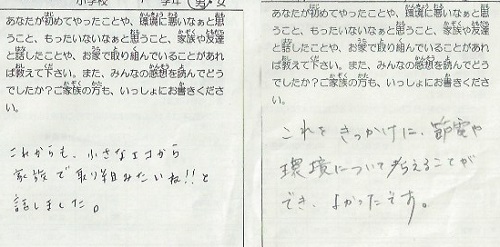 小学校 学年 男・女
あなたが初めてやったことや、環境に悪いなぁと思
うこと、もったいないなぁと思うこと、家族や友達
と話したことや、お家で取り組んでいることがあれ
ば教えて下さい。また、みんなの感想を読んでどう
でしたか？ご家族の方も、いっしょにお書きくださ
い。
これからも、小さなエコから
家族で取り組みたいね!!と
話しました。
あなたが初めてやったことや、環境に悪いなぁと思
うこと、もったいないなぁと思うこと、家族や友達
と話したことや、お家で取り組んでいることがあれ
ば教えて下さい。また、みんなの感想を読んでどう
でしたか？ご家族の方も、いっしょにお書きくださ
い。
これをきっかけに、節電や
環境について考えることが
でき、よかったです。